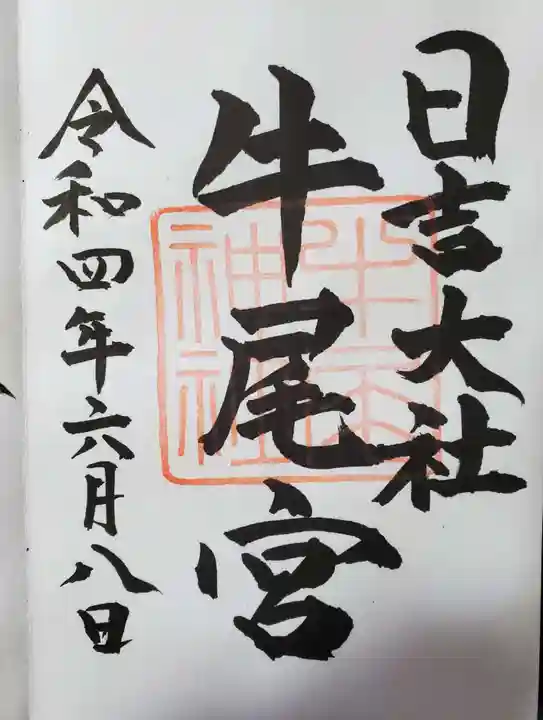 日吉大社
牛尾宮
令和四年六月八日
牛尾
神社